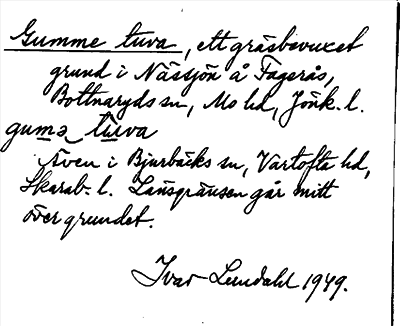 Gumme tuva, ett gräsbevuxet
grund i Nässjön å Fagerås,
Bottnaryds sn, Mo hd, Jönk. l.
gumə tuva
Även i Bjurbäcks sn, Vartofta hd,
Skarab. l. Länsgränsen går mitt
över grundet.
Ivar Lundahl 1949.